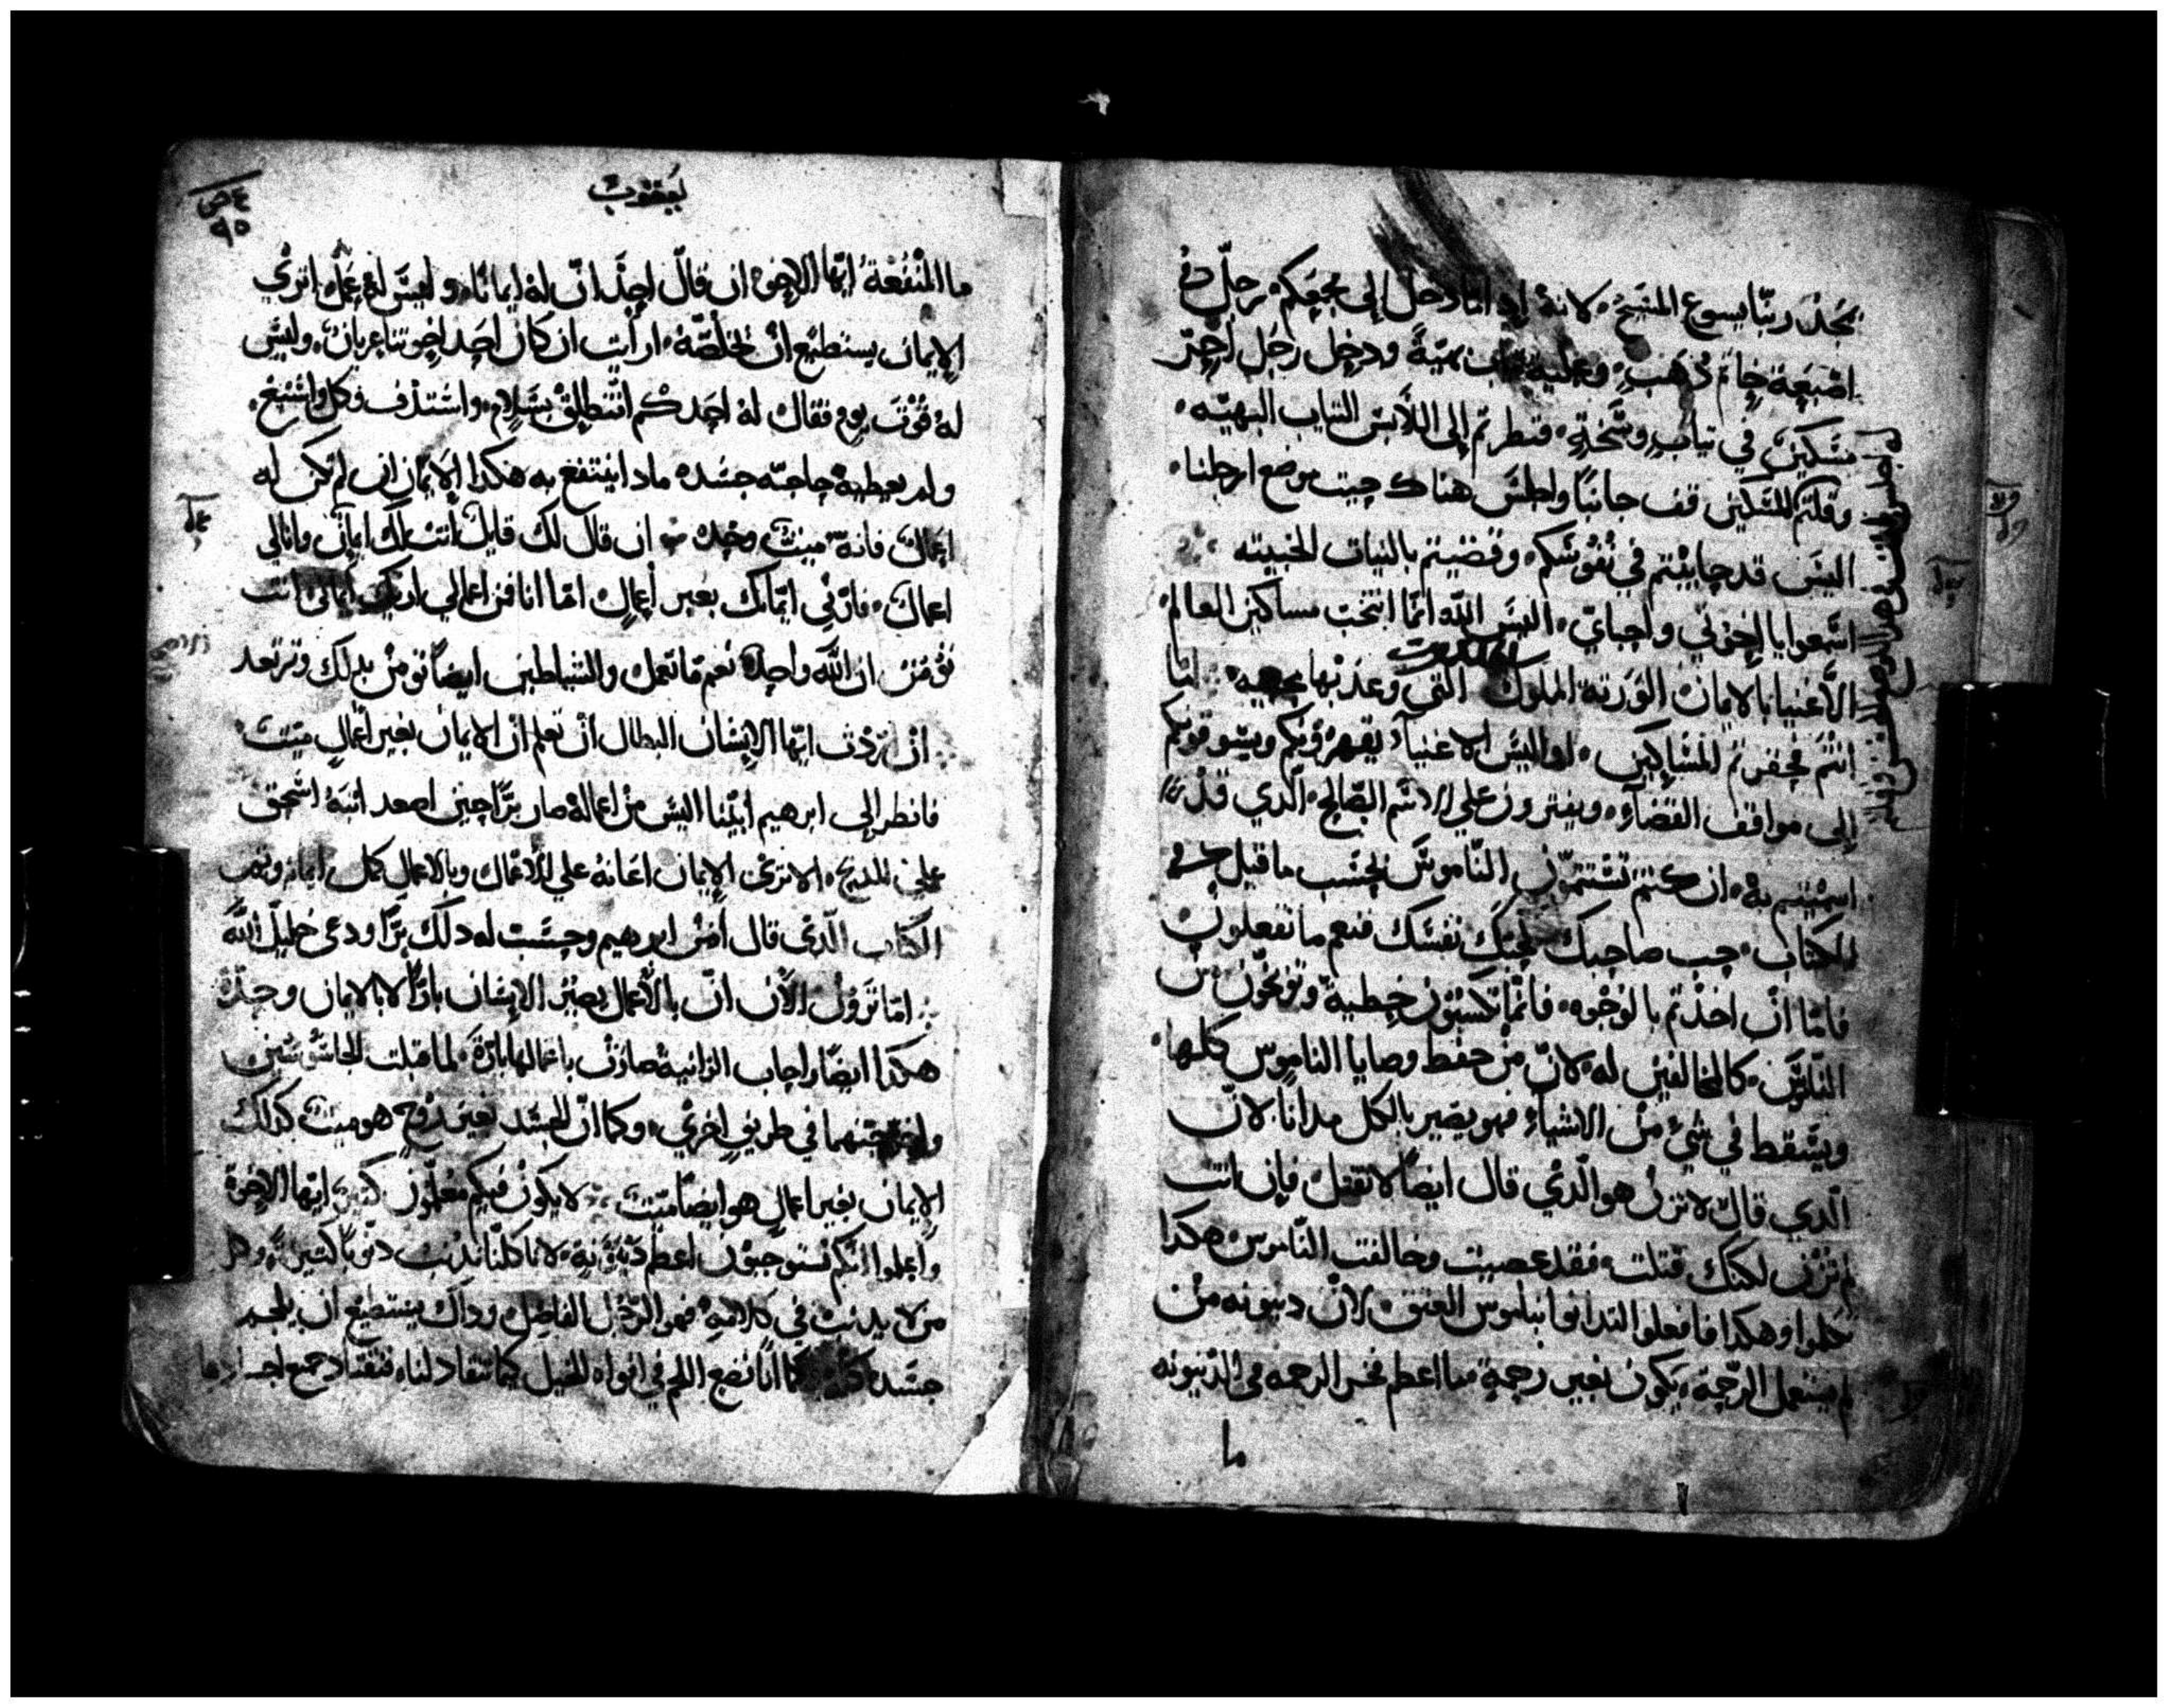 بمجد ربنا يسوع المسيح لانه ان اتا دخل الى مجمعكم رجل في
اصبعه خاتم ذهب وعليه تياب بهية ودخل رجل اخر
مسكين في تياب وسخة فنظرتم إلى اللابس التياب البهيه
وقلتم للمسكين قف جانبا واجلس هناك حيت موضع ارجلنا
اليس قد حابيتم في نفوسكم وقضيتم بالنيات الخبيته
اسمعوا يا اخوتي واحباي اليس الله انما انتخب مساكين العالم
الاغنيا بالايمان الورته الملكوت التي وعد بها محبيه اما
انتم محقرتم المساكين اواليس الاغنياء يقهرونكم ويسوقونكم
إلى مواقف القضاء ويفترون علي الاسم الصالح الذي قد
اسميتم به ان كنتم تستتمون الناموس بحسب ما قيل في
الكتاب حب صاحبك كحبك نفسك فنعم ما تفعلون
فاما ان اخذتم بالوجوه فانما تكسبون خطية وتوبخون من
الناموس كالمخالفين له لان من حفط وصايا الناموس كلها
ويسقط في شئ من الاشياء فهو يصير بالكل مدانا لان
الذي قال لا تزن هو الذي قال ايضا لا تقتل فإن انت
لم تزن لكنك قتلت فقد عصيت وخالفت الناموس هكدا
تكلموا وهكدا فافعلوا لتدانوا بناموس العتق لان دينونه من
لم يستعمل الرحمة يكون بغير رحمة ما اعظم فخر الرحمه في الدينونه
ما
يعقوب
٩٥
ما المنفعة ايها الاخوة ان قال احد ان له ايمانا وليس له عمل اترى
الإيمان يستطيع ان يخلصه ارأيت ان كان احد اخوتنا عريان وليس
له قوت يوم فقال له احدكم انطلق بسلام واستدف وكل واشبع
ولم يعطيه حاجه جسده مادا ينتفع به هكدا الإيمان ان لم تكن له
اعمال فانه ميت وحده ان قال لك قايل انت لك ايمان وانا لي
اعمال فارني ايمانك بغير أعمال اما انا فمن اعمالي اريك ايماني انت
تؤمن ان الله واحد نعم ما تعمل والشياطين ايضا تومن بدلك وترتعد
ان اردت ايها الإنسان البطال أن تعلم ان الإيمان بغير أعمال ميت
فانظر إلى ابرهيم ابينا اليس من اعماله صار برا حين اصعد ابنه اسحق
على المدبح الا ترى الإيمان اعانه علي الاعمال وبالاعمال كمل ايمانه وتم
الكتاب الذي قال امن ابرهيم وحسب له دلك برا ودعي خليل الله
اما ترون الآن ان بالأعمال يصير الإنسان بارا لا بالايمان وحده
هكدا ايضا راحاب الزانية صارت باعمالها بارة لما قبلت الجاسوسين
واخرجتهما في طريق اخري وكما ان الجسد بغير روح هو ميت كدلك
الإيمان بغير اعمال هو ايضا ميت لا يكون فيكم معلمون كتير ايها الاخوة
واعلموا انكم تستوجبون اعظم دينونة لانا كلنا ندنب دنوبا كتيرة وكل
من لا يدنب في كلامه فهو الرجل الفاضل وداك يستطيع ان يلجم
جسده كله كما انا نضع اللجم في افواه الخيل كيما تنقاد لنا فتنقاد جميع اجسادها